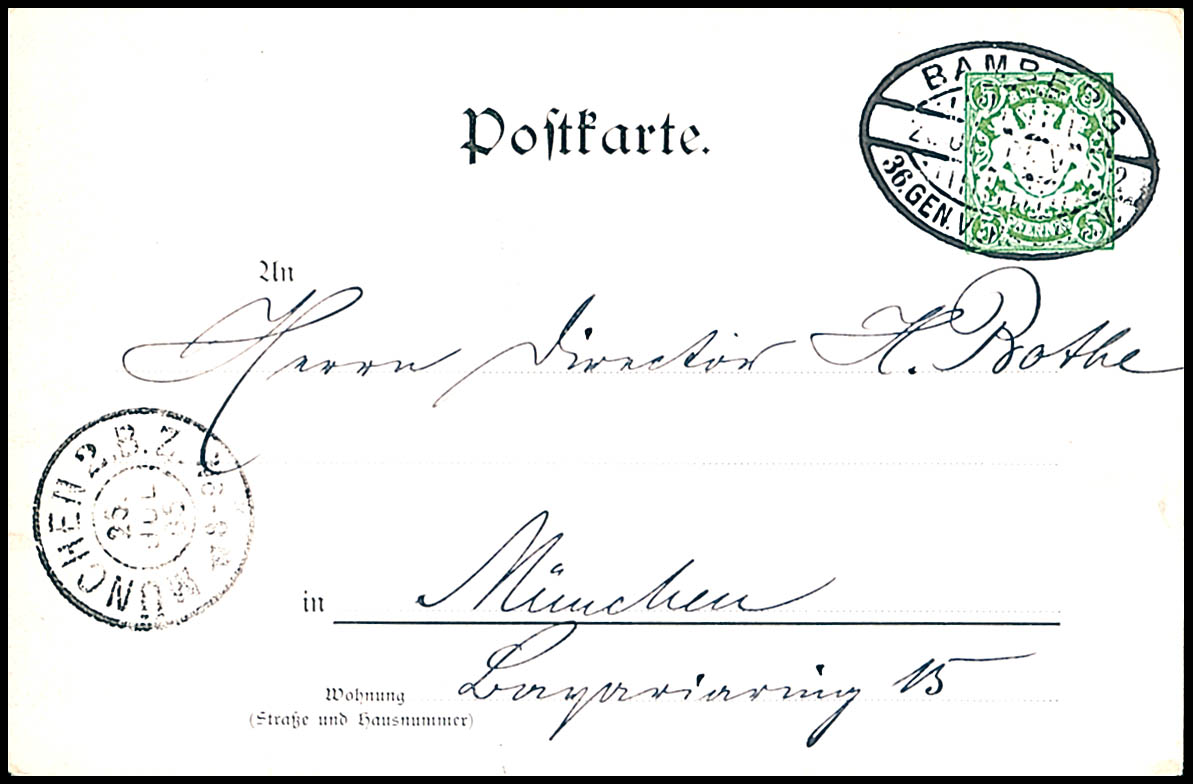 Postkarte.
BAMBERG
36. GEN. V.
An
Herrn Director H. Bothe
MÜNCHEN 2. B. Z.
25
JUL
in München
Wohnung Bavariaring 15
(Straße und Hausnummer)